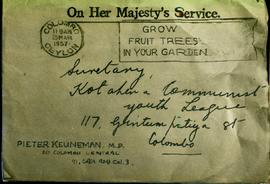 On Her Majesty's Service.
COLOMBO
1957
CEYLON
GROW
FRUIT TREES
IN YOUR GARDEN
Secretary,
Kotahena Communist
youth League
117, st
Colombo
PIETER KEUNEMAN, M.P.
COLOMBO CENTRAL